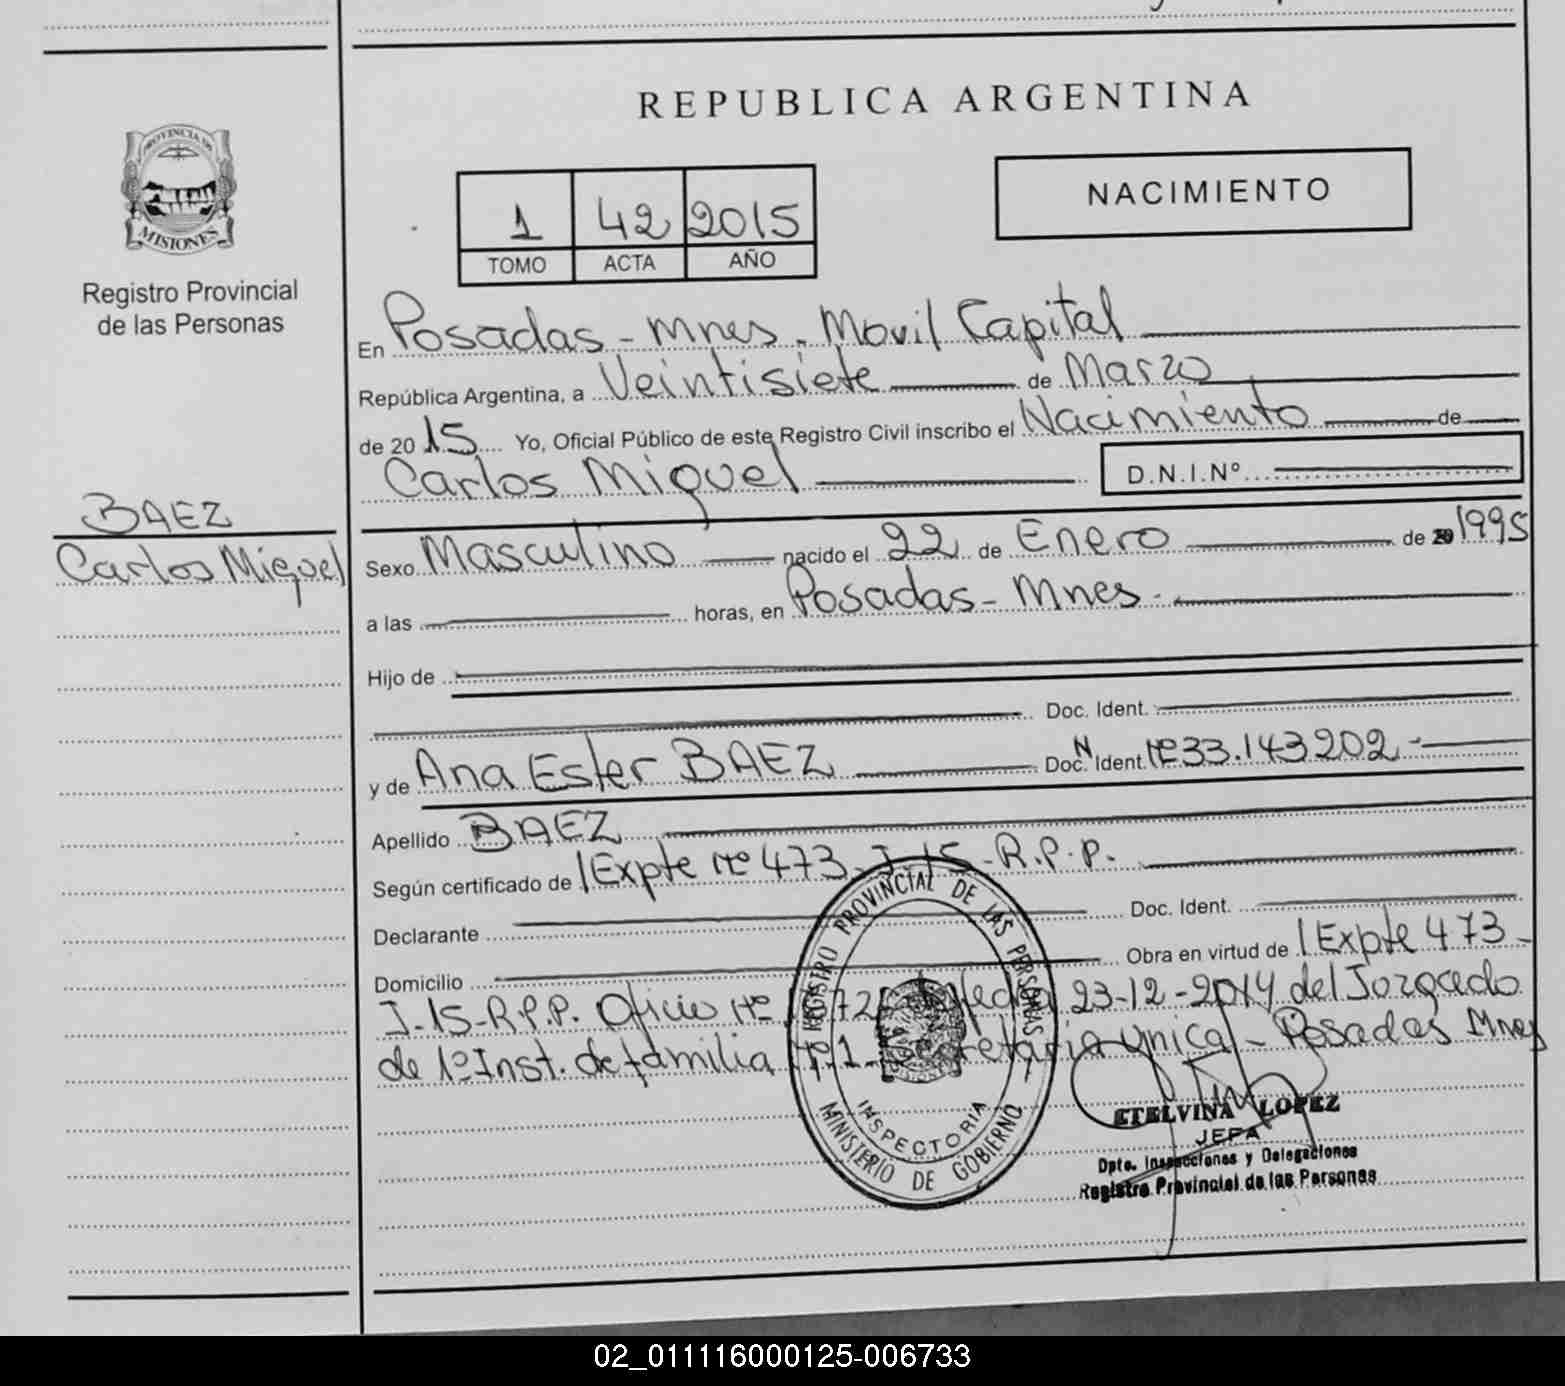 REPUBLICA ARGENTINA
PROVINCIA DE
MISIONES
Registro Provincial
de las Personas
1 42 2015
TOMO ACTA AÑO
NACIMIENTO
En Posadas - Mnes. Movil Capital
República Argentina, a Veintisiete de Marzo
de 2015 Yo, Oficial Público de este Registro Civil inscribo el Nacimiento de
Carlos Miguel D.N.I.Nº
BAEZ
Carlos Miguel
Sexo Masculino nacido el 22 de Enero de 1995
a las horas, en Posadas - Mnes.
Hijo de
Doc. Ident.
y de Ana Ester BAEZ Doc. Ident. Nº 33.143.202-
Apellido BAEZ
Según certificado de Expte Nº 473-J-15-R.P.P.
Declarante Doc. Ident.
Domicilio Obra en virtud de Expte 473-
J-15-R.P.P. Oficio Nº fecha 23-12-2014 del Juzgado
de 1º Inst. de familia Nº 1 - Secretaria Unica - Posadas Mnes
REGISTRO PROVINCIAL DE LAS PERSONAS
INSPECTORIA
MINISTERIO DE GOBIERNO
ETELVINA LOPEZ
JEFA
Dpto. Inspecciones y Delegaciones
Registro Provincial de las Personas
02_011116000125-006733